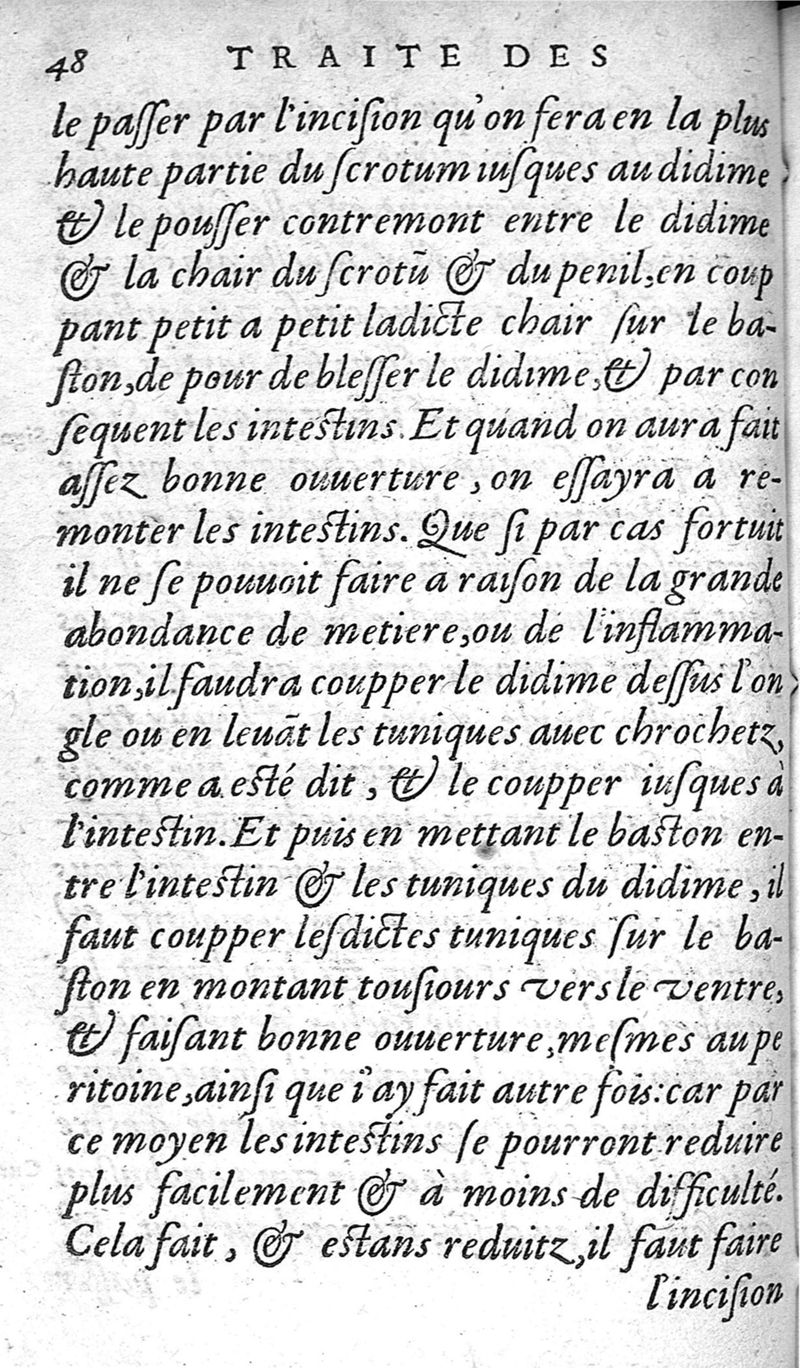 48 TRAITE DES
le paſſer par l'inciſion qu'on fera en la plus
haute partie du ſcrotum iuſques au didime
& le pouſſer contremont entre le didime
& la chair du ſcrotũ & du penil, en coup
pant petit a petit ladicte chair ſur le ba-
ſton, de peur de bleſſer le didime, & par con
ſequent les inteſtins. Et quand on aura fait
aſſez bonne ouuerture, on eſſayra a re-
monter les inteſtins. Que ſi par cas fortuit
il ne ſe pouuoit faire a raiſon de la grande
abondance de metiere, ou de l'inflamma-
tion, il faudra coupper le didime deſſus l'on
gle ou en leuãt les tuniques auec chrochetz,
comme a eſté dit, & le coupper iuſques à
l'inteſtin. Et puis en mettant le baſton en-
tre l'inteſtin & les tuniques du didime, il
faut coupper leſdictes tuniques ſur le ba-
ſton en montant touſiours vers le ventre,
& faiſant bonne ouuerture, meſmes au pe
ritoine, ainſi que i'ay fait autre fois: car par
ce moyen les inteſtins ſe pourront reduire
plus facilement & à moins de difficulté.
Cela fait, & eſtans reduitz, il faut faire
l'inciſion